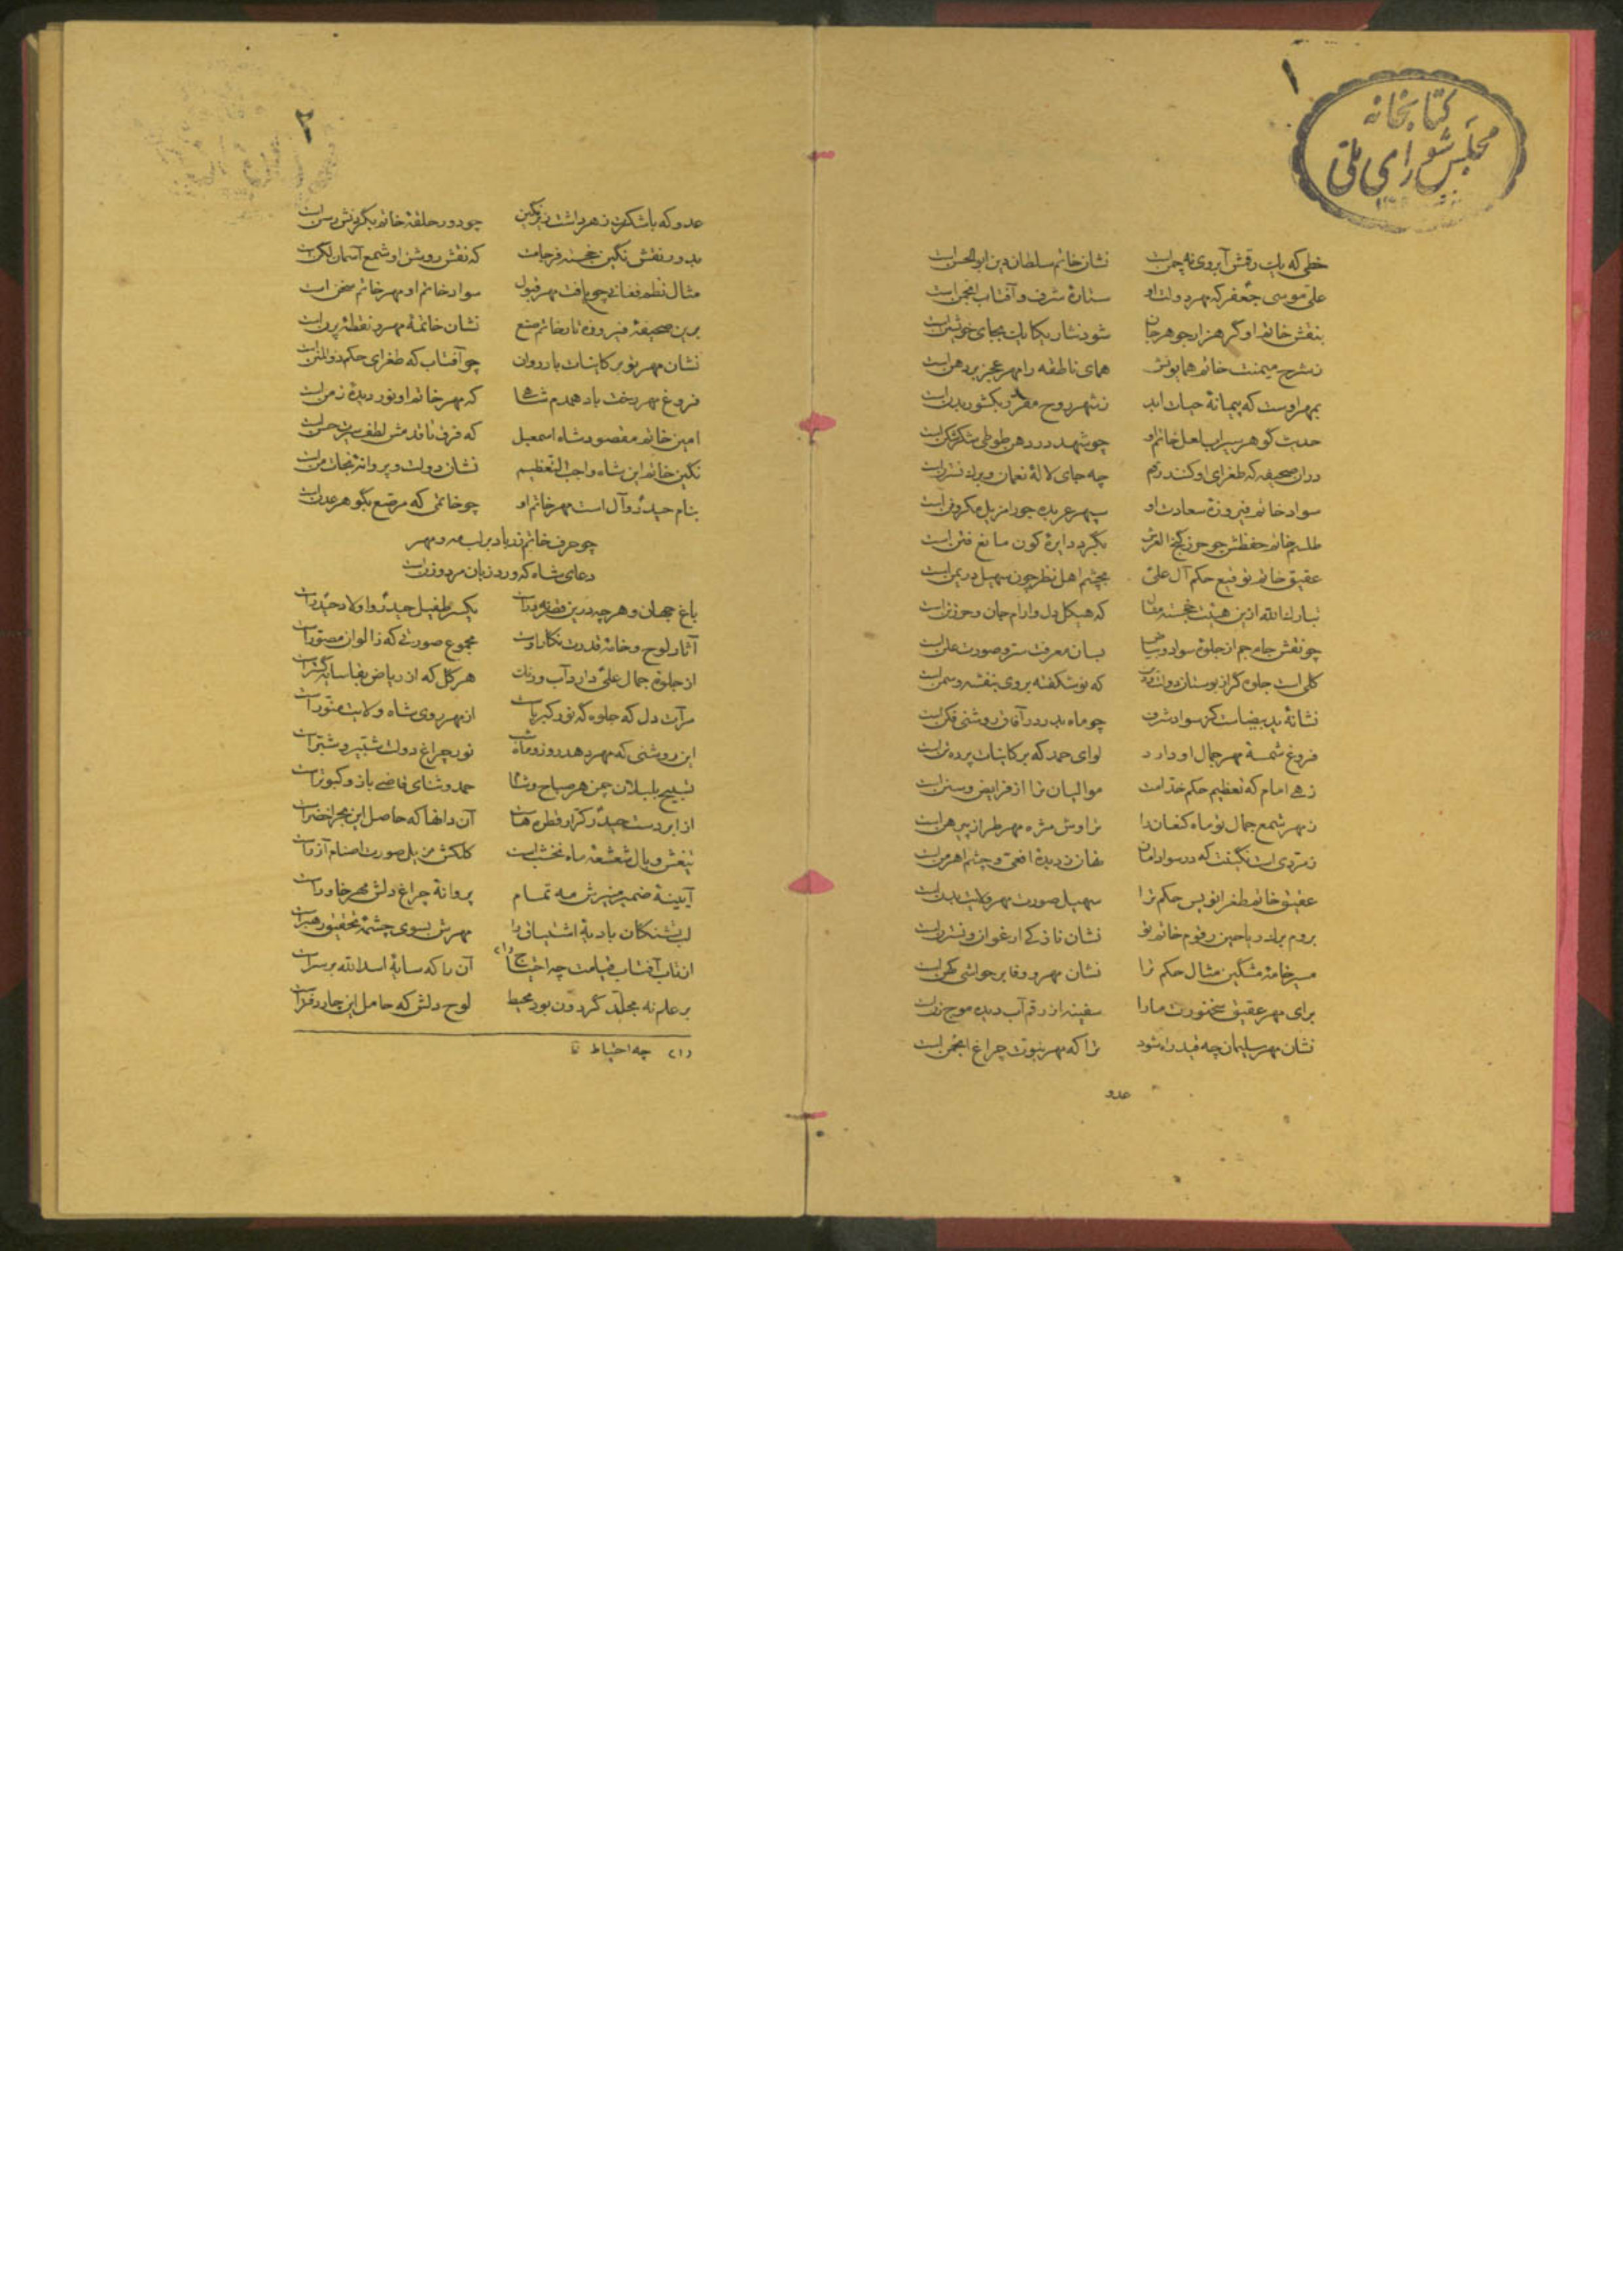 ۱
کتابخانه
مجلس شورای ملی
خطی که یک رقمش آبروی نه چمن است نشان خاتم سلطان دین ابوالحسن است
علی موسی جعفر که مهر دولت او ستارهٔ شرف و آفتاب انجمن است
بنقش خاتم او گر هزار جوهر جان شود نثار یکایک بجای خویشتن است
ز شرح میمنت خاتم همایونش همای ناطقه را مهر عجز بر دهن است
بمهر اوست که پیمانهٔ حیات ابد ز شهر روح مقرر بکشور بدن است
حدیث گوهر سیراب لعل خاتم او چو شهد در دهن طوطی شکر شکن است
در آن صحیفه که طغرای او کنند رقم چه جای لالهٔ نعمان و برگ نسترن است
سواد خاتم فیروزهٔ سعادت او سپهر عربده جو را مزیل مکر و فن است
طلسم خاتم حفظش چو حرز کنج العرش بگرد دایرهٔ کون مانع فتن است
عقیق خاتم توقیع حکم آل علی بچشم اهل نظر چون سهیل در یمن است
تبارک الله ازین هیئت خجسته مقال که هیکل دل و آرام جان و حرز تن است
چو نقش جام جم از جلوهٔ سواد و بیاض بسان معرفت ستر و صورت علن است
گلی است جلوه گر از بوستان دولت که نو شکفته بروی بنفشه و سمن است
نشانهٔ ید بیضاست کز سواد شرف چو ماه بدر در آفاق روشنی فکن است
فروغ شمسهٔ مهر جمال او دارد لوای حمد که بر کاینات پرده تن است
زهی امام که تعظیم حکم خدامت موالیان ترا از فرایض و سنن است
ز مهر شمع جمال تو ماه کنعان را تراوش مژه مهر طراز پیرهن است
زمردی است نگینت که در سواد امان نشان دیدهٔ افعی و چشم اهرمن است
عقیق خاتم طغرانویس حکم ترا سهیل صورت مهر ولایت بدن است
بروم برگ ریاحین رقوم خاتم تو نشان نازکی ارغوان و نسترن است
مسیر خامهٔ مشکین مثال حکم ترا نشان مهر و وفا بر حواشی کهن است
برای مهر عقیق سخنورت ما را سفینه از رقم آب دیده موج زن است
نشان مهر سلیمان چه قید راه شود ترا که مهر نبوت چراغ انجمن است
عدو
۲
عدو که باشکرت زهر داشت زیر نگین چو دور حلقهٔ خاتم بگردنش رسن است
بدور نقش نگین خجسته فرجامت که نقش روشن او شمع آسمان لگن است
مثال نظم فغانی چو یافت مهر قبول سواد خاتم او مهر خاتم سخن است
برین صحیفهٔ فیروزه تا ز خاتم صنع نشان خاتمهٔ مهر و نقطهٔ پرن است
نشان مهر تو بر کاینات باد روان چو آفتاب که طغرای حکم ذوالمنن است
فروغ مهر رخت باد همدم شاها که مهر خاتم او نور دیدهٔ زمن است
امین خاتم مقصود شاه اسمعیل که فرق تا قدمش لطف سیرت حسن است
نگین خاتم این شاه واجب التعظیم نشان دولت و پروانهٔ نجات من است
بنام حیدر و آل است مهر خاتم او چو خاتمی که مرصع بگوهر عدن است
چو حرف خاتم زد یاد بر لب مه و مهر
دعای شاه که ورد زبان مرد و زن است
باغ جهان و هر چه درین قصر نه در است یکسر طفیل حیدر و اولاد حیدر است
آثار لوح و خامهٔ قدرت نگار اوست مجموع صورتی که ز الوان مصور است
از جلوهٔ جمال علی دارد آب و رنگ هر گل که از ریاض بقا سایه گستر است
مرآت دل که جلوه گه نور کبریاست از مهر روی شاه ولایت منور است
این روشنی که مهر دهد روز و ماه شب نور چراغ دولت شبیر و شبر است
تسبیح بلبلان چمن هر صباح و شام حمد و ثنای قاضی باز و کبوتر است
از ابر دست حیدر کرار قطره‌هاست آن دانها که حاصل این بحر اخضر است
تیغش وبال شعشعهٔ ماه نخشب است کلکش مزیل صورت اصنام آزر است
آیینهٔ ضمیر منیرش مه تمام پروانهٔ چراغ دلش مهر خاور است
لب تشنگان بادیهٔ اشتیاق را مهرش بسوی چشمهٔ تحقیق رهبر است
از تاب آفتاب قیامت چه احتیاج (۱) آن را که سایهٔ اسد الله بر سر است
بر علم نه مجلد گردون بود محیط لوح دلش که حامل این چار دفتر است
(۱) چه احتیاط